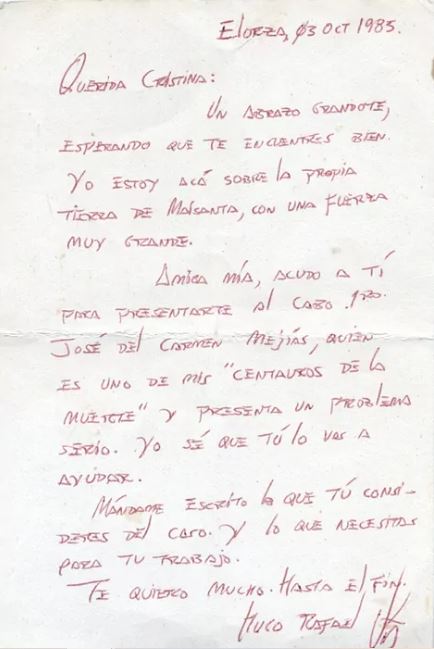 Elorza, 03 Oct 1985.
Querida Cristina:
Un abrazo grandote,
esperando que te encuentres bien.
Yo estoy acá sobre la propia
tierra de Maisanta, con una fuerza
muy grande.
Amiga mía, acudo a tí
para presentarte al Cabo 1ro.
José del Carmen Mejías, quien
es uno de mis "centauros de la
muerte" y presenta un problema
serio. Yo sé que tú lo vas a
ayudar.
Mándame escrito lo que tú consi-
deres del caso. Y lo que necesitas
para tu trabajo.
Te quiero mucho. Hasta el fin.
Hugo Rafael